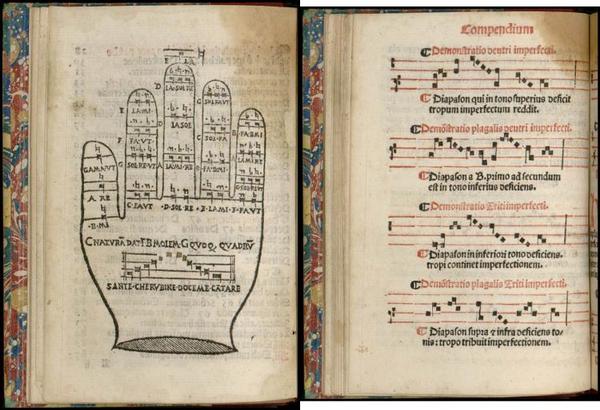 H
E LA
D LASOLRE
E C SOLFAUT
LAMI D LASOL B FABMI
F FAVT C SOLFA A LAMIRE
GAMAUT G SOLREUT A B FABMI G SOLREUT
A RE
B MI C FAUT D SOLRE E LAMI F FAVT
C NATURĀ DAT F BMOLEM G QUOQ QUADRŪ
SANTE CHERUBINE DOCE ME CATARE
Compendium
Demonstratio deutri imperfecti.
Diapason qui in tono superius deficit
tropum imperfectum reddit.
Demōstratio plagalis deutri imperfecti.
Diapason a B. primo ad secundum
est in tono inferius deficiens.
Demonstratio Triti imperfecti.
Diapason in inferiori tono deficiens.
tropi continet imperfectionem.
Demōstratio plagalis Triti imperfecti.
Diapason supra & infra deficiens to-
nis: tropo tribuit imperfectionem.